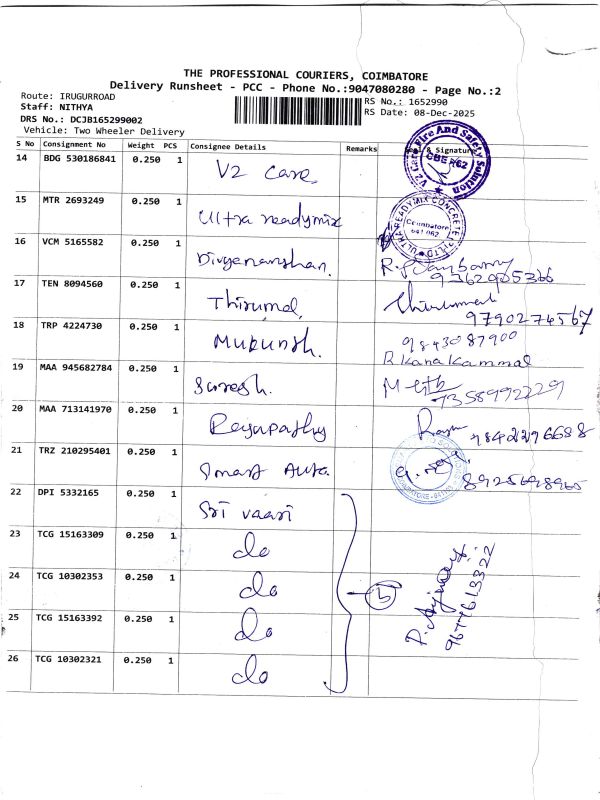 THE PROFESSIONAL COURIERS, COIMBATORE
Delivery Runsheet - PCC - Phone No.:9047080280 - Page No.:2
Route: IRUGURROAD
Staff: NITHYA
DRS No.: DCJB165299002
Vehicle: Two Wheeler Delivery
RS No.: 1652990
RS Date: 08-Dec-2025
S No Consignment No Weight PCS Consignee Details Remarks & Signature
14 BDG 530186841 0.250 1 V2 Care
V2 Care Fire And Safety Solution
CBE-62
15 MTR 2693249 0.250 1 Ultra readymix
ULTRA READYMIX CONCRETE (P) LTD
Coimbatore
641 062
16 VCM 5165582 0.250 1
17 TEN 8094560 0.250 1 Thirumal
Thirumal
9790274567
18 TRP 4224730 0.250 1 Mukunth.
9843087900
R. Kanakammal
19 MAA 945682784 0.250 1 Suresh.
7358992229
20 MAA 713141970 0.250 1
9842296688
21 TRZ 210295401 0.250 1 Smart Auto.
8925698965
22 DPI 5332165 0.250 1 Sri Vaari
23 TCG 15163309 0.250 1 do
24 TCG 10302353 0.250 1 do
5
9677613322
25 TCG 15163392 0.250 1 do
26 TCG 10302321 0.250 1 do